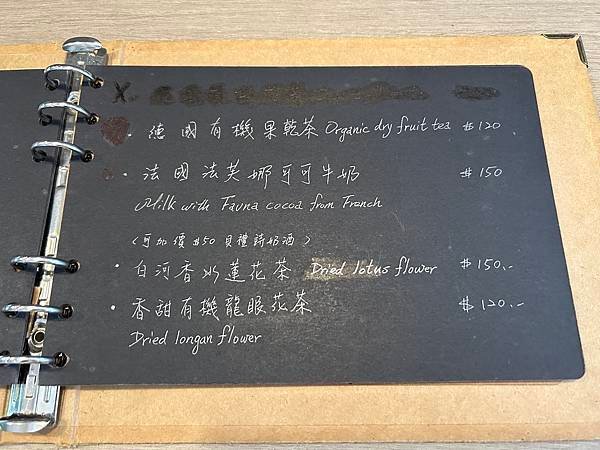 X.
· 德國有機果乾茶 Organic dry fruit tea $120.
· 法國法芙娜可可牛奶 $150
Milk with Fauna cocoa from French
(可加價$50 貝禮詩奶酒)
· 白河香水蓮花茶 Dried lotus flower $150.-
· 香甜有機龍眼花茶 $120.-
Dried longan flower